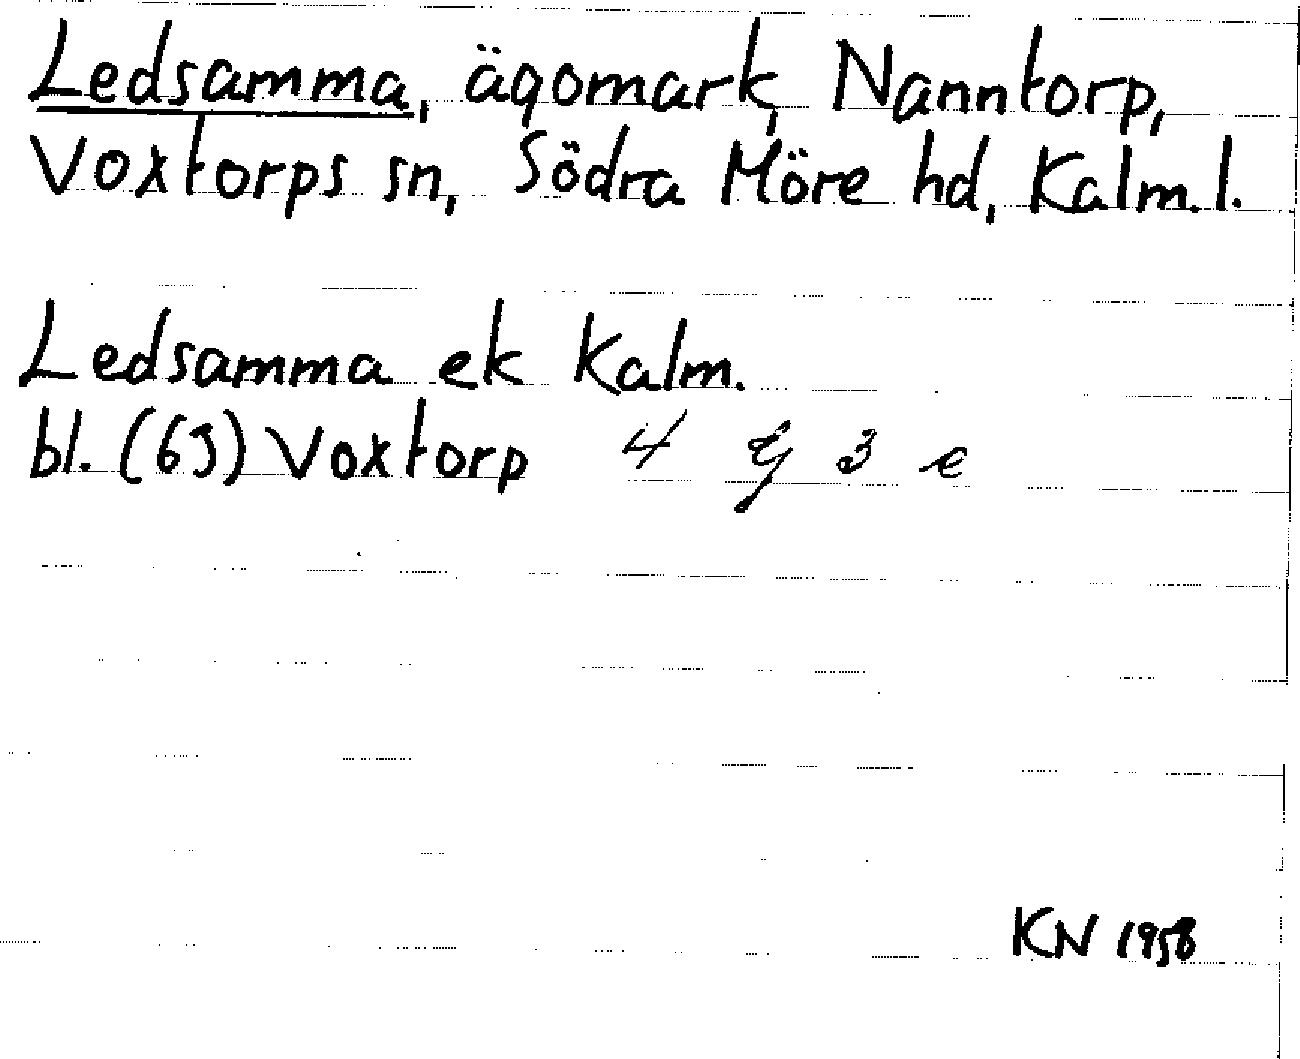 Ledsamma, ägomark, Nanntorp,
Voxtorps sn, Södra Möre hd, Kalm. l.
Ledsamma ek Kalm.
bl. (63) Voxtorp 4 G 3 e
KN 1958